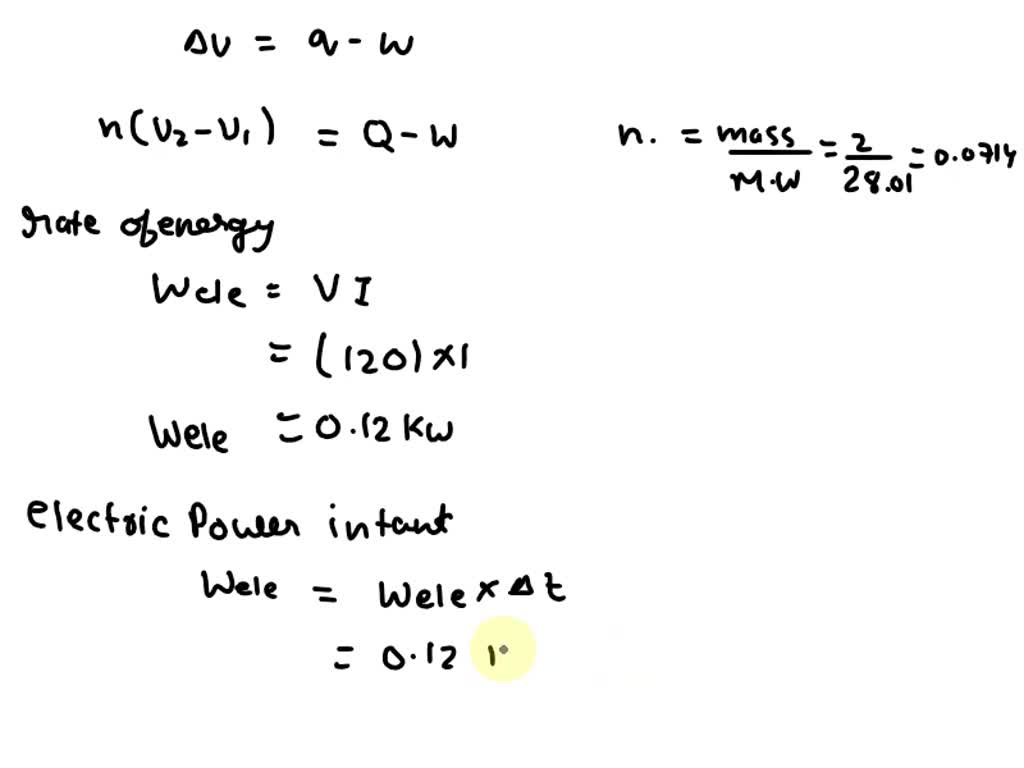 ΔU = q - W
n(U₂-U₁) = Q-W
n. = mass/M.W = 2/28.01 = 0.0714
rate of energy
Wele = VI
= (120)×1
Wele = 0.12 kw
electric Power intant
Wele = Wele × Δt
= 0.12